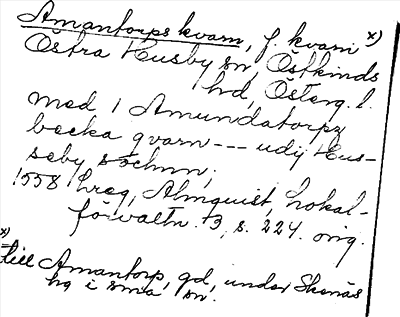 Amantorps kvarn, f. kvarn x)
Östra Husby sn, Östkinds
hd, Österg. l.
med 1 Amundatorpz
becka qvarn --- udij Hus-
seby sochnn;
1558 hreg, Almquist, Lokal-
förvaltn. 3, s. 224. orig.
x) till Amantorp, gd, under Skenäs
hg i sma sn.